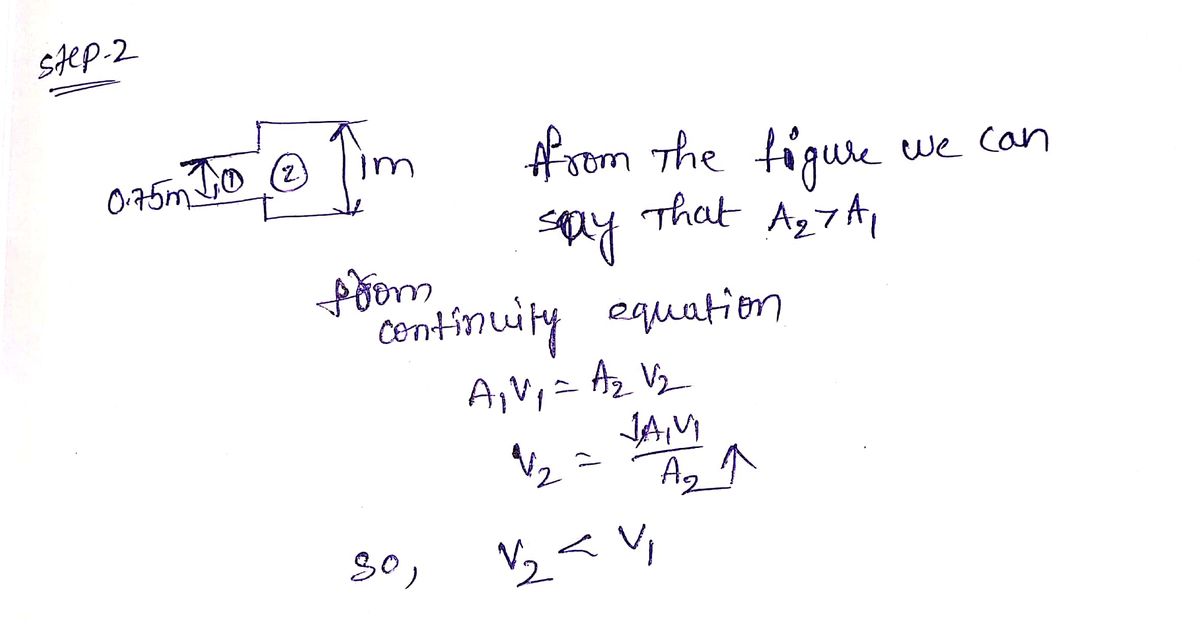 Step-2
0.75m ① ② 1m
from The figure we can
say That A₂>A₁
from
continuity equation
A₁V₁ = A₂V₂
V₂ = ↓A₁V₁ / A₂ ↑
so, V₂ < V₁